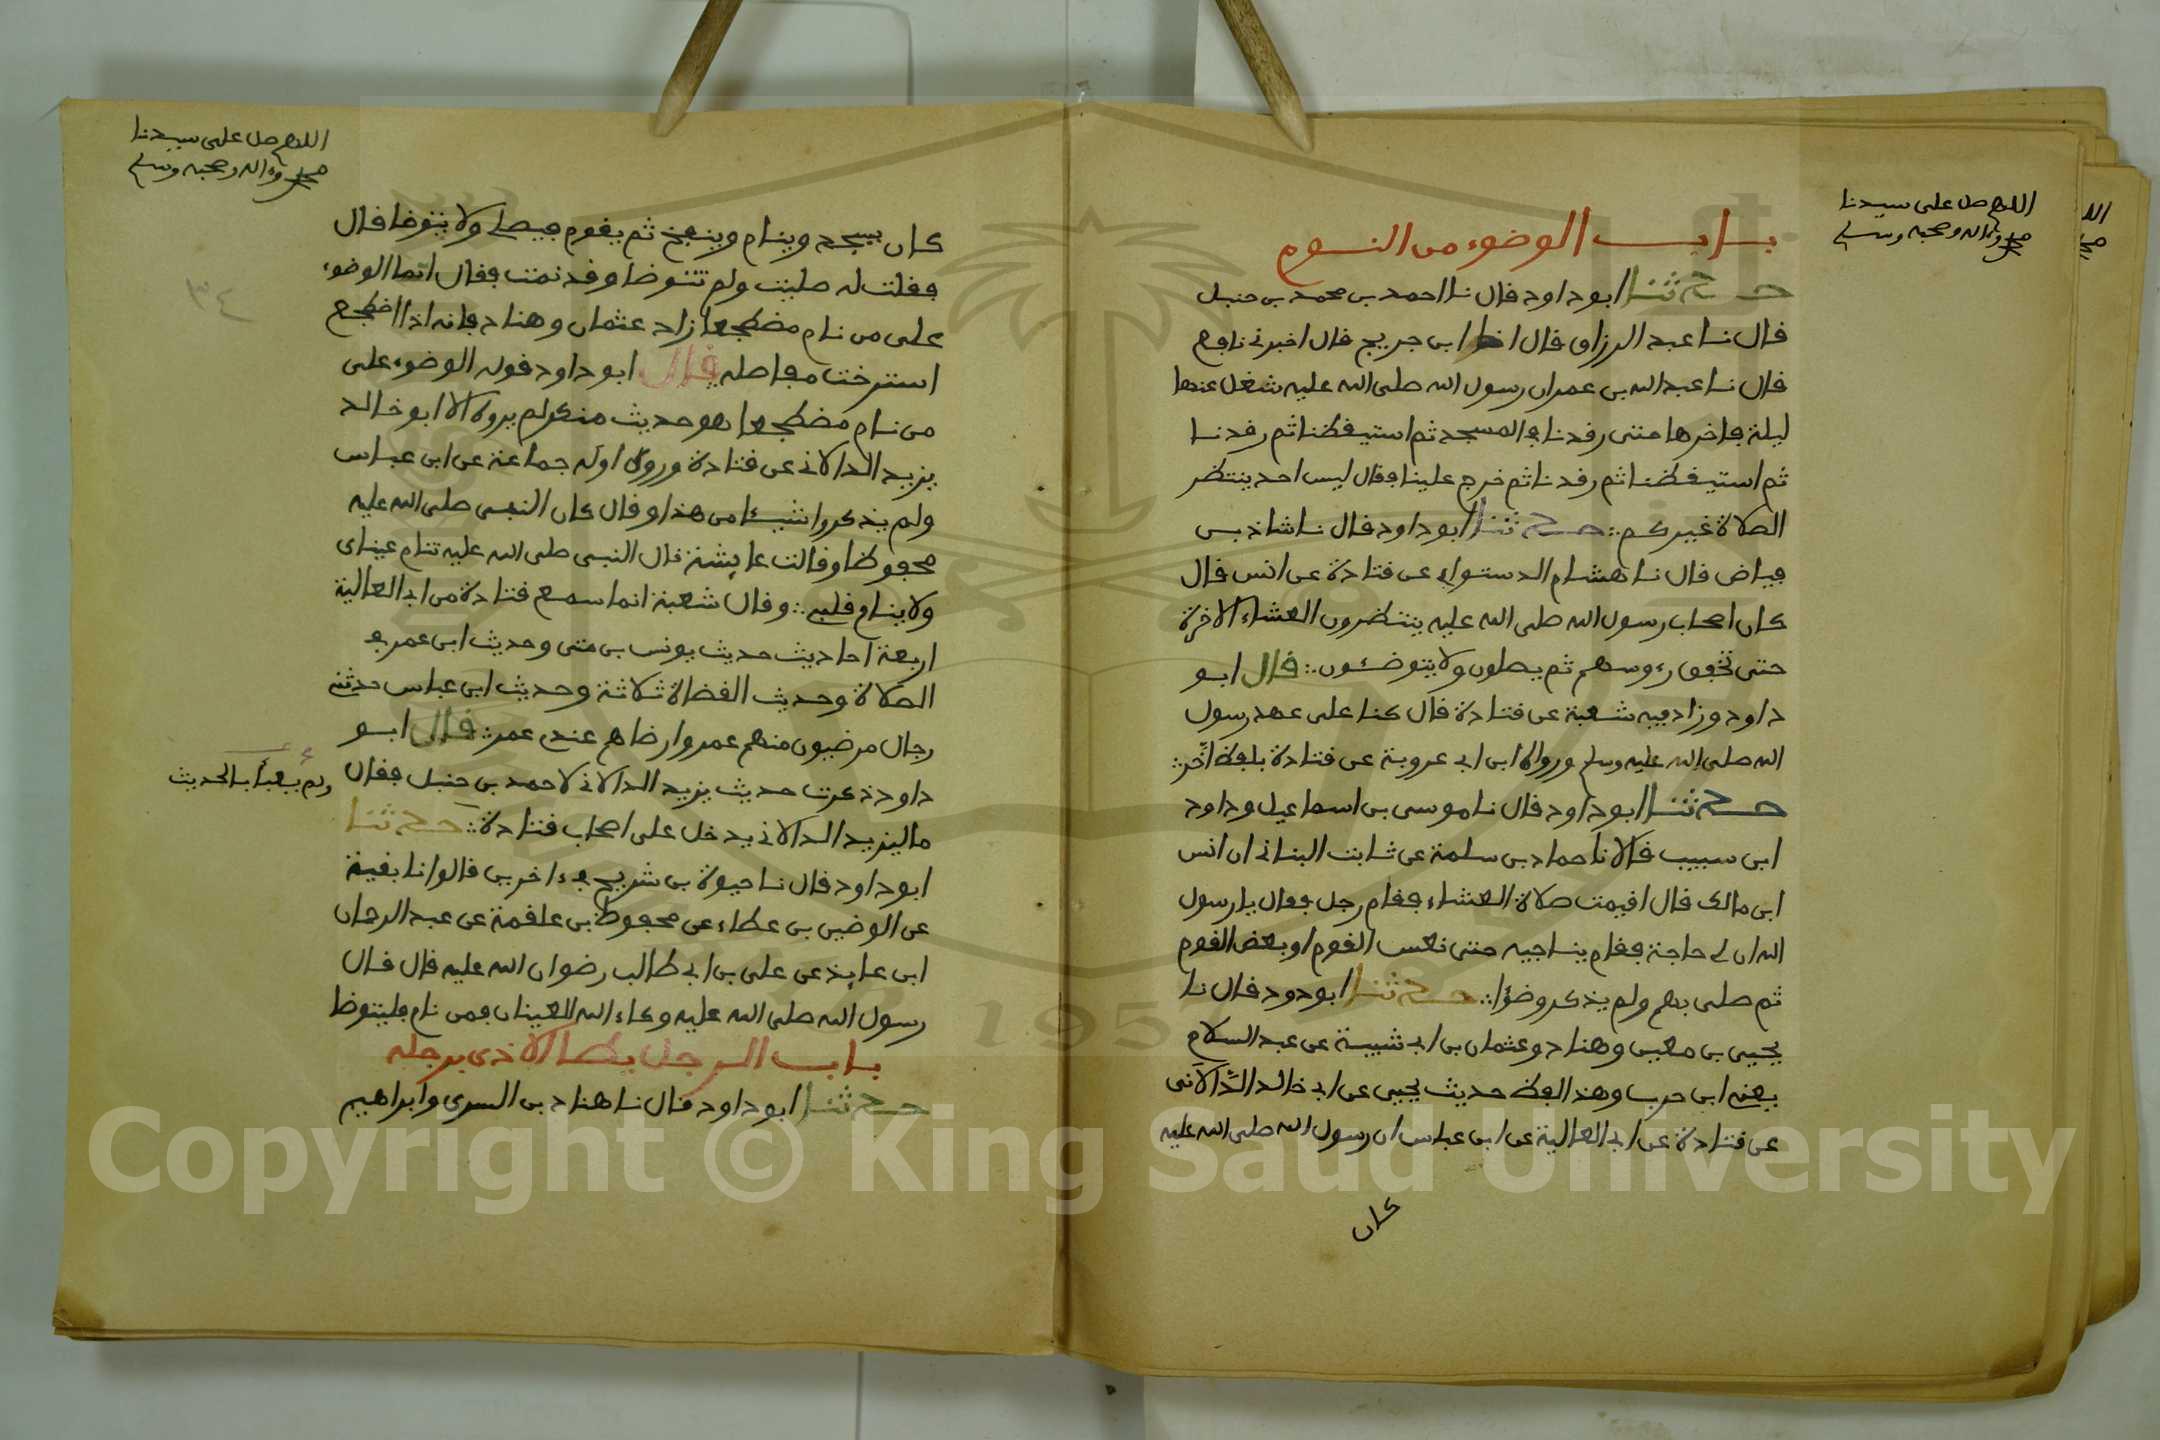 اللهم صل على سيدنا
محمد وءاله وصحبه وسلم
باب الوضوء من النوم
حدثنا ابو داود قال نا احمد بن محمد بن حنبل
قال نا عبد الرزاق قال انا ابن جريج قال اخبرني نافع
قال نا عبد الله بن عمر ان رسول الله صلى الله عليه شغل عنها
ليلة فاخرها حتى رقدنا في المسجد ثم استيقظنا ثم رقدنا
ثم استيقظنا ثم رقدنا ثم خرج علينا فقال ليس احد ينتظر
الصلاة غيركم حدثنا ابو داود قال نا شاذ بن
فياض قال نا هشام الدستواي عن قتادة عن انس قال
كان اصحاب رسول الله صلى الله عليه ينتظرون العشاء الاخرة
حتى تخفق رءوسهم ثم يصلون ولا يتوضئون قال ابو
داود وزاد فيه شعبة عن قتادة قال كنا على عهد رسول
الله صلى الله عليه وسلم ورواه ابن ابي عروبة عن قتادة بلفظ اخر
حدثنا ابو داود قال نا موسى بن اسماعيل وداود
ابن سبيب قالا نا حماد بن سلمة عن ثابت البناني ان انس
ابن مالك قال اقيمت صلاة العشاء فقام رجل فقال يا رسول
الله ان لي حاجة فقام يناجيه حتى نعس القوم او بعض القوم
ثم صلى بهم ولم يذكر وضؤا حدثنا ابو دود قال نا
يحيى بن معين وهناد وعثمان بن ابي شيبة عن عبد السلام
يعني ابن حرب وهذا لفظ حديث يحيى عن ابي خالد الدالاني
عن قتادة عن ابي العالية عن ابن عباس ان رسول الله صلى الله عليه
كان
اللهم صل على سيدنا
محمد وءاله وصحبه وسلم
٣٤
كان يسجد وينام وينفخ ثم يقوم فيصلي ولا يتوضا قال
فقلت له صليت ولم تتوضا وقد نمت فقال انما الوضوء
على من نام مضطجعا زاد عثمان وهناد فانه اذا اضطجع
استرخت مفاصله قال ابو داود قوله الوضوء على
من نام مضطجعا هو حديث منكر لم يروه الا ابو خالد
يزيد الدالاني عن قتادة وروى اوله جماعة عن ابن عباس
ولم يذكروا شيئا من هذا وقال كان النبي صلى الله عليه
محفوظا وقالت عايشة قال النبي صلى الله عليه تنام عيناى
ولا ينام قلبي وقال شعبة انما سمع قتادة من ابي العالية
اربعة احاديث حديث يونس بن متى وحديث ابن عمر في
الصلاة وحديث القضاة ثلاثة وحديث ابن عباس حدثني
رجال مرضيون منهم عمر وارضاهم عندى عمر قال ابو
داود ذكرت حديث يزيد الدالاني لاحمد بن حنبل فقال
ولم يعبأ بالحديث
ما ليزيد الدالاني يدخل على اصحاب قتادة حدثنا
ابو داود قال نا حيوة بن شريح في ءاخرين قالوا نا بقية
عن الوضين بن عطاء عن محفوظ بن علقمة عن عبد الرحمان
ابن عايذ عن علي بن ابي طالب رضوان الله عليه قال قال
رسول الله صلى الله عليه وكاء الله العينان فمن نام فليتوضا
باب الرجل يطا الاذى برجله
حدثنا ابو داود قال نا هناد بن السرى وابراهيم
Copyright © King Saud University
1957